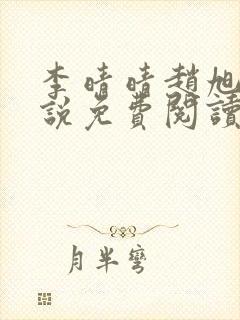 李晴晴趙旭
說免費閱讀
月半彎